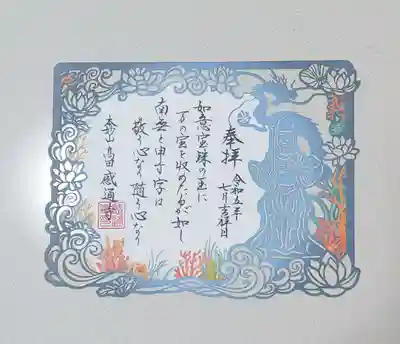 奉拝
令和五年
七月吉祥日
如意宝珠の玉に
万の宝を収めたるが如し
南無と申す字は
敬う心なり随う心なり
高田 感通寺